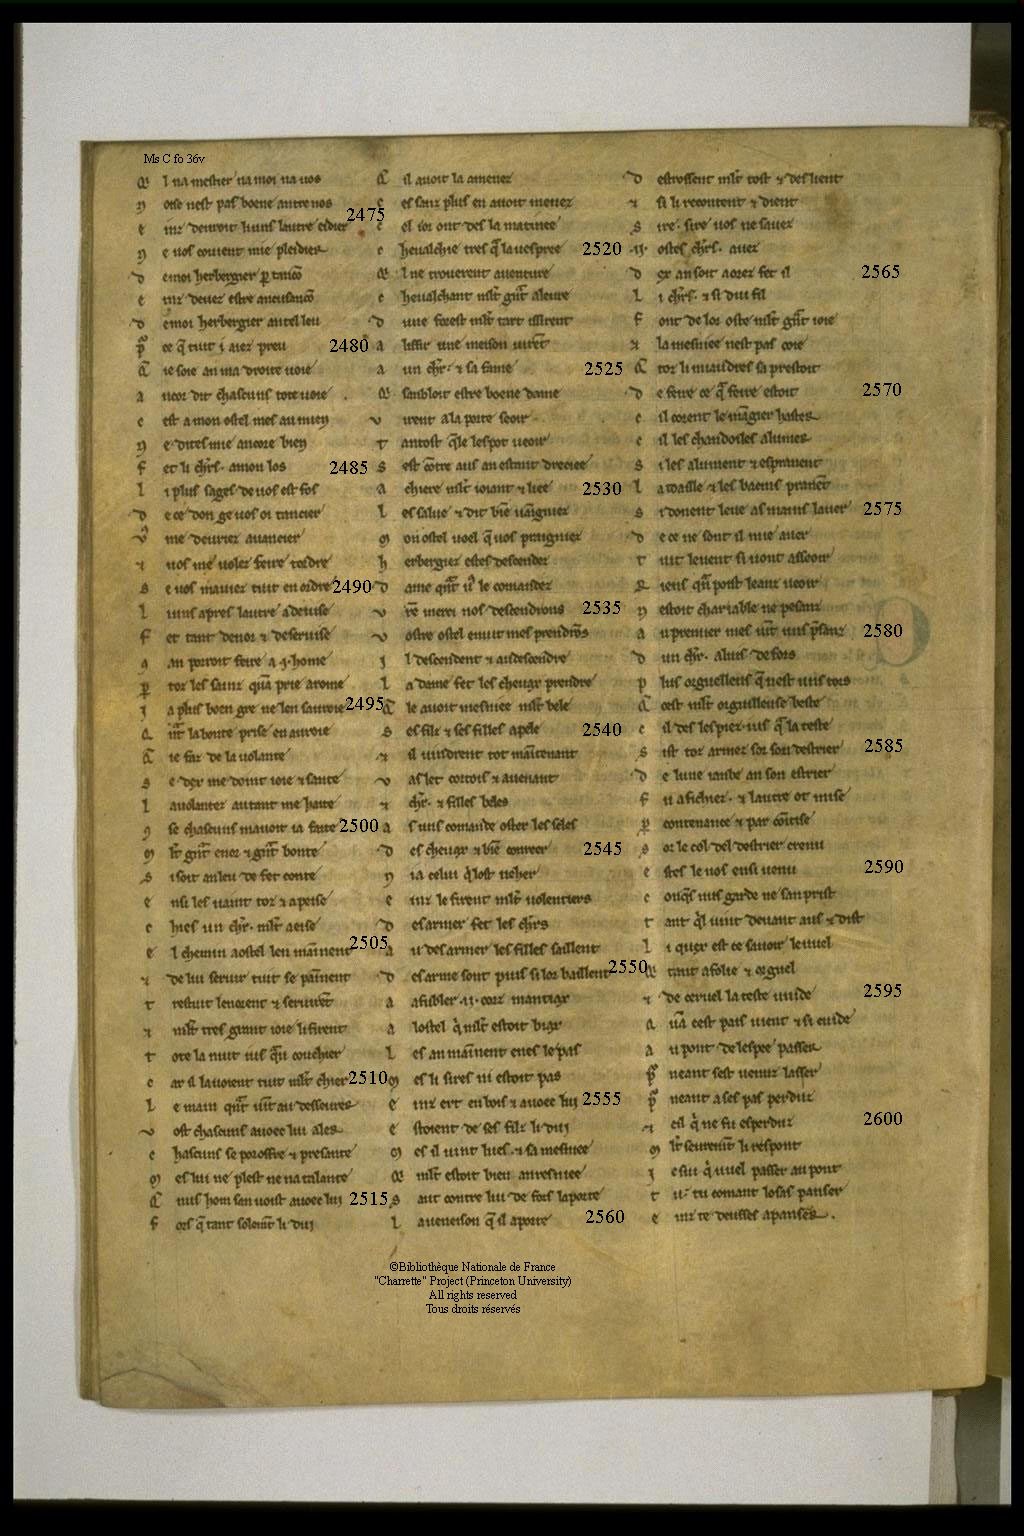 Ms C fo 36v
Qil na mestier na moi na vos
Noise nest pas boene antre nos
Einz devroit li uns lautre eidier 2475
Ne vos covient mie pleidier
De moi herbergier p̱ tancō
Einz devez estre an cusancō
De moi herbergier an tel leu
P̱ce q̄ tuit i aiez preu 2480
Qie soie an ma droite voie
Ancor dit chascuns tote voie
Cest a mon ostel mes au mien
Ne dites mie ancore bien
Fet li chrs. amon los 2485
Li plus sages de vos est fos
De ce don ge vos oi tancier
Vos me devriez avancier
Et vos me volez feire tordre
Se vos maviez tuit en ordre 2490
Li uns apres lautre a devise
Fet tant denor et de servise
Can porroit feire a .i. home
P̱ toz les sainz quā prie a rome
Ja plus boen gre ne len savroie 2495
Qāt la bonte prise en avroie
Qie faz de la volante
Se dex me doint ioie et sante
La volantez autant me haite
Con se chascuns mavoit ia faite 2500
Mlt grāt enor et grāt bonte
Si soit an leu de fet conte
Ensi les vaint toz et apeise
Chies un chr. mlt aeise
El chemin a ostel len māinent 2505
Et de lui servir tuit se pāinent
Trestuit lenorent et servirēt
Et mlt tres grant ioie li firent
Tote la nuit iusq̄u couchier
Car il lavoient tuit mlt chier 2510
Le main qāt vīt au dessevrer
Vost chascuns avoec lui aler
Chascuns se poroffre et presante
Mes lui ne plest ne natalante
Q̄ nus hom san voist avoec lui 2515
Fors q̄ tant solemāt li dui
Q̄ il avoit la amenez
Ces sanz plus en avoit menez
Cel ior ont des la matinee
Chevalchie tres q̄ la vespree 2520
Qil ne troverent aventure
Chevalchant mlt grāt aleure
Dune forest mlt tart issirent
A lissir une meison virēt
A un chr. et sa fame 2525
Qi sanbloit estre boene dame
Virent a la porte seoir
Tantost q̄le les pot veoir
Sest cōtre aus an estant dreciee
A chiere mlt ioiant et liee 2530
Les salue et dit biē vaigniez
Mon ostel voel q̄ vos praigniez
Herbergiez estes descendez
Dame qāt vos le comandez
Vr̄e merci nos descendrons 2535
Vostre ostel enuit mes prendrōs
Il descendent et au descendre
La dame fet les chevax prendre
Qele avoit mesniee mlt bele
Ses filz et ses filles apele 2540
Et il vindrent tot maītenant
Vaslet cortois et avenant
Et chr. et filles beles
As uns comande oster les seles
Des chevax et biē conreer 2545
Nia celui q̄ lost veher
Einz le firent mlt volentiers
Desarmer fet les chrs
Au desarmer les filles saillent
Desarme sont puis si lor baillent 2550
A afubler .iii. corz mantiax
A lostel q̄ mlt estoit biax
Les an māinent enes le pas
Mes li sires ni estoit pas
Einz ert en bois et avoec lui 2555
Estoient de ses filz li dui
Mes il vint lues. et sa mesniee
Qi mlt estoit bien anresniee
Saut contre lui de fors la porte
La veneison q̄ il aporte 2560
Destrossent mlt tost et deslient
Et si li recontent et dient
Sire. sire vos ne savez
.iii. ostes chrs. avez
Dex an soit aorez fet il 2565
Li chrs. et si dui fil
Font de lor oste mlt grāt ioie
Et la mesniee nest pas coie
Q̄ toz li mandres sa prestoit
De feire ce q̄ feire estoit 2570
Cil corent le māgier haster
Cil les chandoiles alumer
Si les alument et espranent
La toaille et les bacins pranēt
Si donent leve as mains laver 2575
De ce ne sont il mie aver
Tuit levent si vont asseoir
Riens q̄n poist leanz veoir
Nestoit chariable ne pesanz
Au premier mes vīt uns p̄sanz 2580
Dun chr. a luis de fors
Plus orguelleus q̄ nest uns tors
Q̄ cest mlt orguilleuse beste
Cil des les piez ius q̄ la teste
Sist toz armez sor son destrier 2585
De lune ianbe an son estrier
Fu afichiez. et lautre ot mise
P̱ contenance et par cōtise
Sor le col del destrier crenu
Estes le vos ensi venu 2590
Conq̄s nus garde ne san prist
Tant q̄l vint devant aus et dist
Li quex est ce savoir le vuel
Qi tant a folie et orguel
Et de cervel la teste vuide 2595
Qi vā cest pais vient et si cuide
Au pont de lespee passer
P̄ neant sest venuz lasser
P̄ neant a ses pas perduz
Et cil q̄ ne fu esperduz 2600
Mlt seuremāt li respont
Je sui q̄ vuel passer au pont
Tu. tu comant losas panser
Einz te deusses apanser.
©Bibliothèque Nationale de France
"Charrette" Project (Princeton University)
All rights reserved
Tous droits réservés